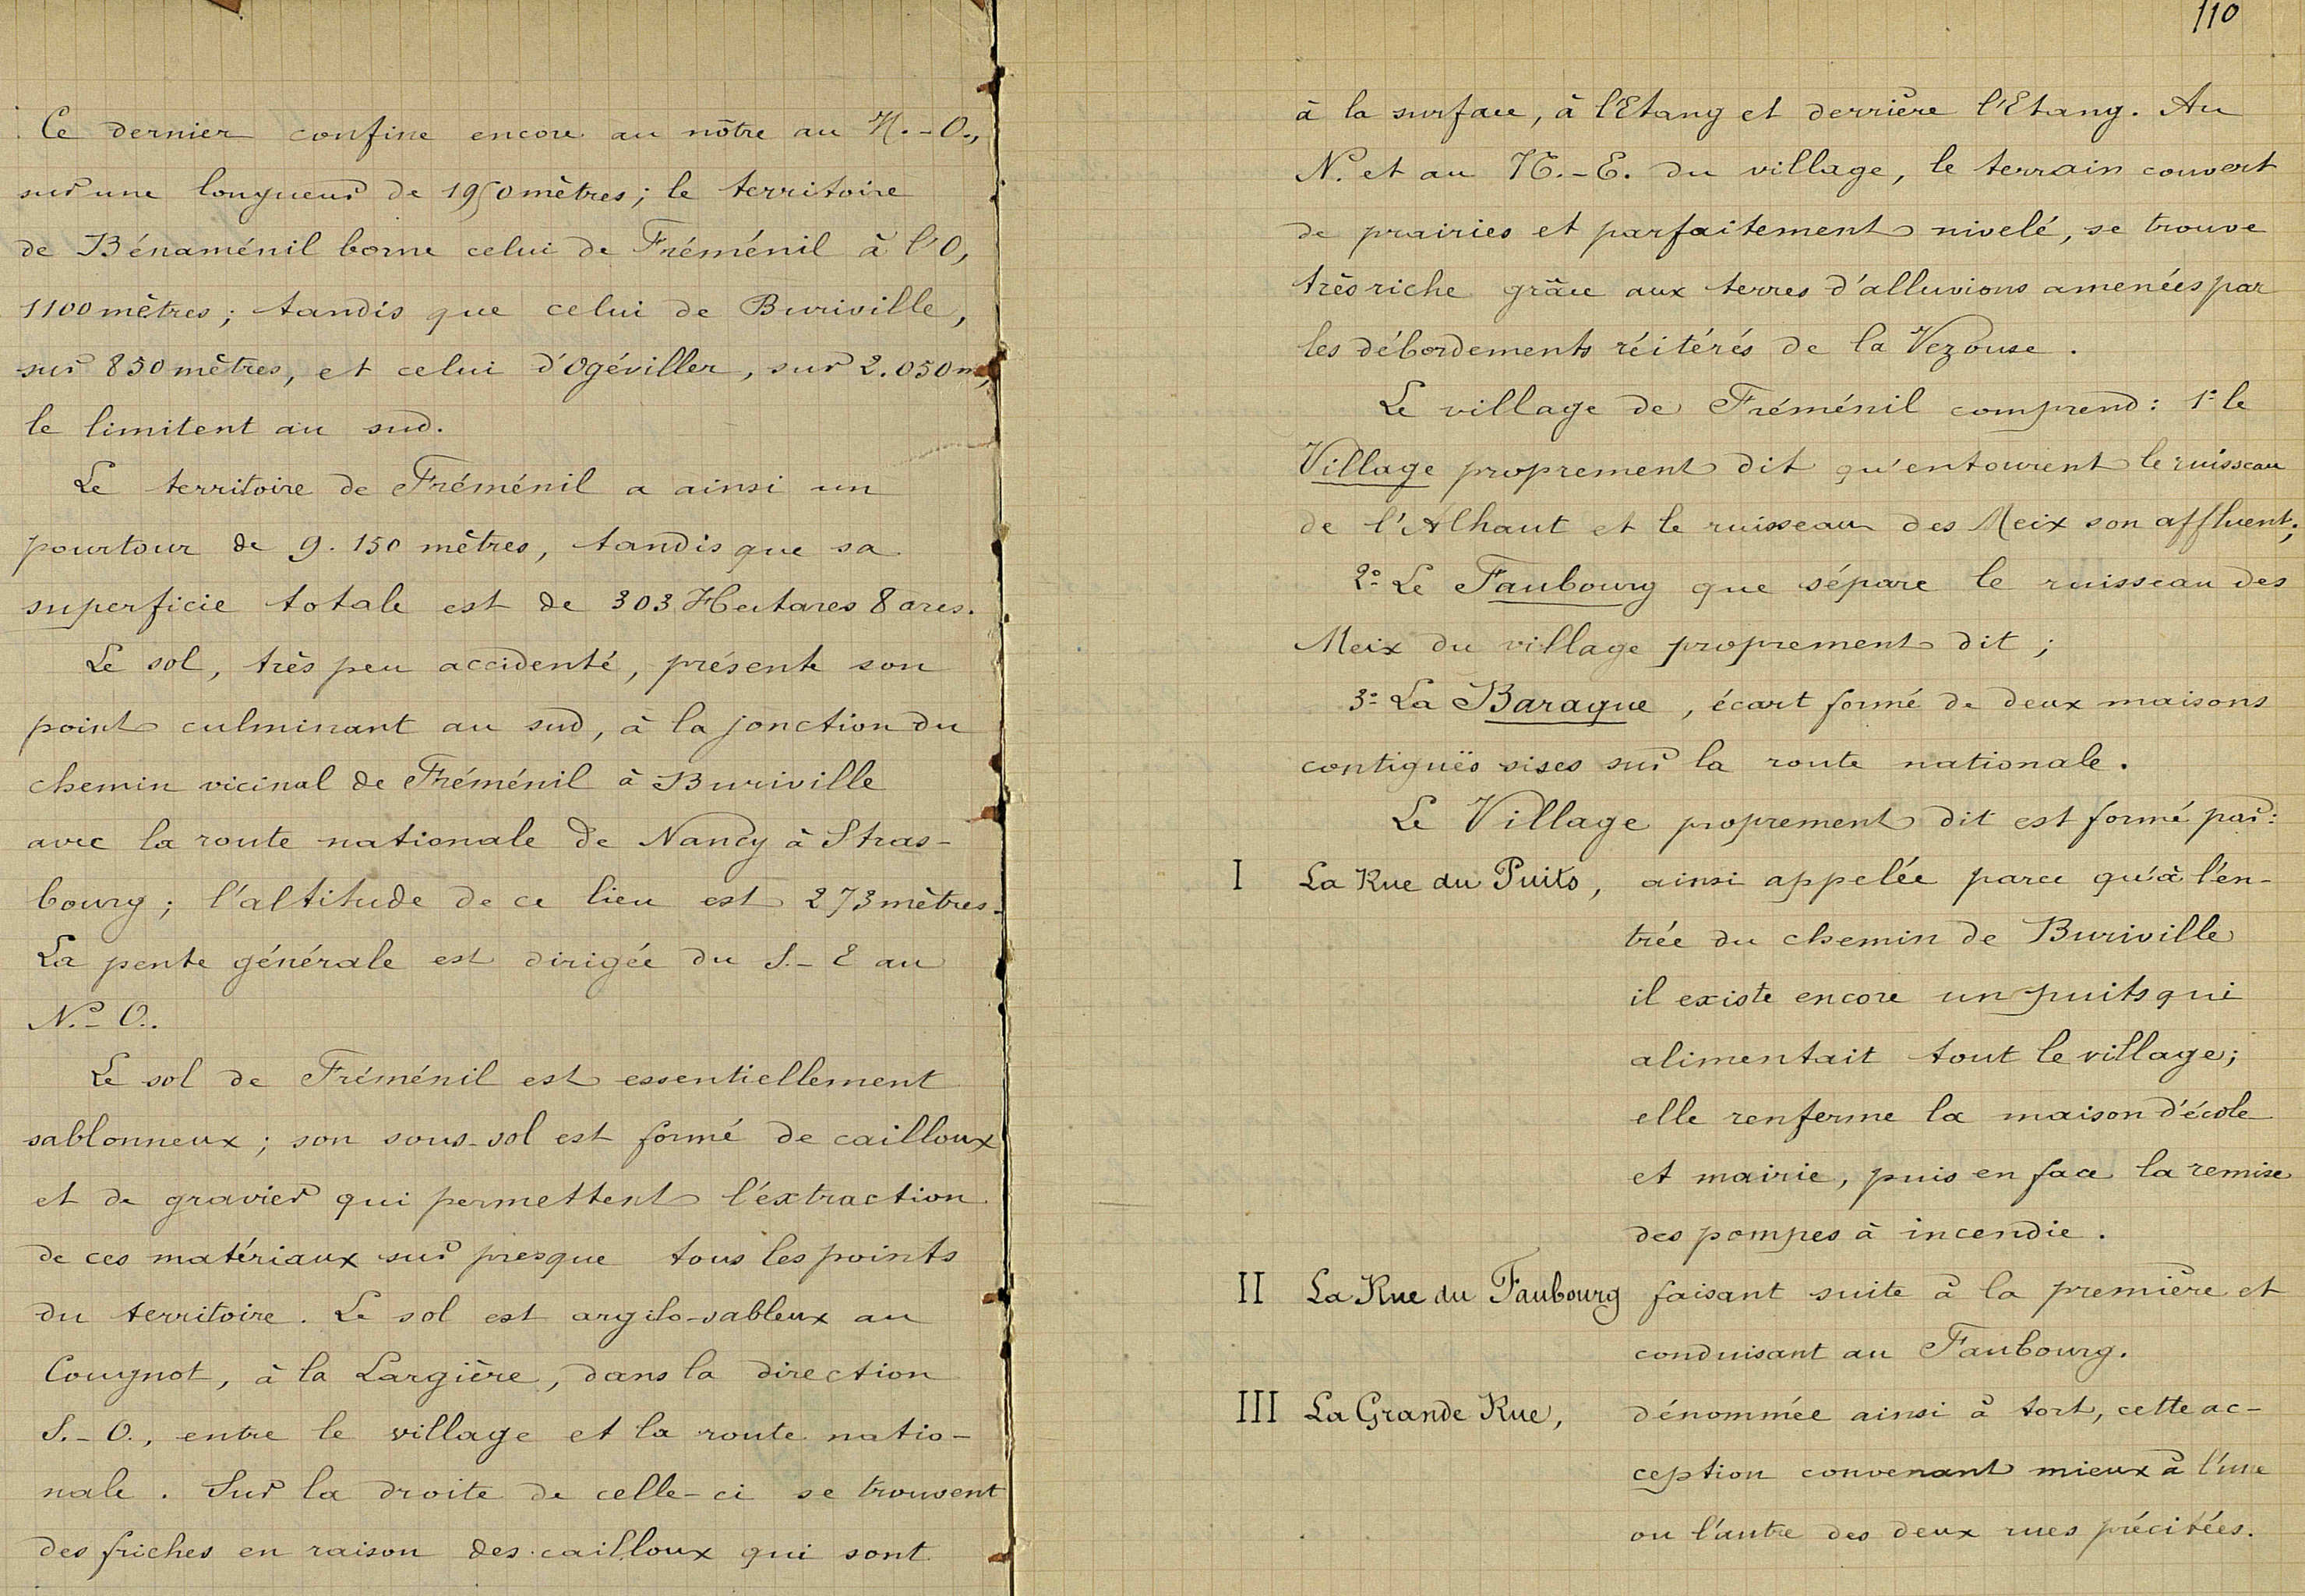 Ce dernier confine encore au nôtre au N.-O.,
sur une longueur de 1950 mètres; le territoire
de Bénaménil borne celui de Fréménil à l'O,
1100 mètres; tandis que celui de Buriville,
sur 850 mètres, et celui d'Ogéviller, sur 2.050 m,
le limitent au sud.
Le territoire de Fréménil a ainsi un
pourtour de 9.150 mètres, tandis que sa
superficie totale est de 303 Hectares 8 ares.
Le sol, très peu accidenté, présente son
point culminant au sud, à la jonction du
chemin vicinal de Fréménil à Buriville
avec la route nationale de Nancy à Stras-
bourg; l'altitude de ce lieu est 273 mètres.
La pente générale est dirigée du S.-E au
N.-O..
Le sol de Fréménil est essentiellement
sablonneux; son sous-sol est formé de cailloux
et de gravier qui permettent l'éxtraction
de ces matériaux sur presque tous les points
du territoire. Le sol est argilo-sableux au
Cougnot, à la Largière, dans la direction
S.-O., entre le village et la route natio-
nale. Sur la droite de celle-ci se trouvent
des friches en raison des cailloux qui sont
110
à la surface, à l'Etang et derrière l'Etang. Au
N. et au N.-E. du village, le terrain couvert
de prairies et parfaitement nivelé, se trouve
très riche grâce aux terres d'alluvions amenées par
les débordements réitérés de la Vezouse.
Le village de Fréménil comprend: 1° le
Village proprement dit qu'entourent le ruisseau
de l'Alhaut et le ruisseau des Meix son affluent;
2° Le Faubourg que sépare le ruisseau des
Meix du village proprement dit;
3° La Baraque, écart formé de deux maisons
contiguës sises sur la route nationale.
Le Village proprement dit est formé par:
I La Rue du Puits, ainsi appelée parce qu'à l'en-
trée du chemin de Buriville
il existe encore un puits qui
alimentait tout le village;
elle renferme la maison d'école
et mairie, puis en face la remise
des pompes à incendie.
II La Rue du Faubourg faisant suite à la première et
conduisant au Faubourg.
III La Grande Rue, dénommée ainsi à tort, cette ac-
ception convenant mieux à l'une
ou l'autre des deux rues précitées.